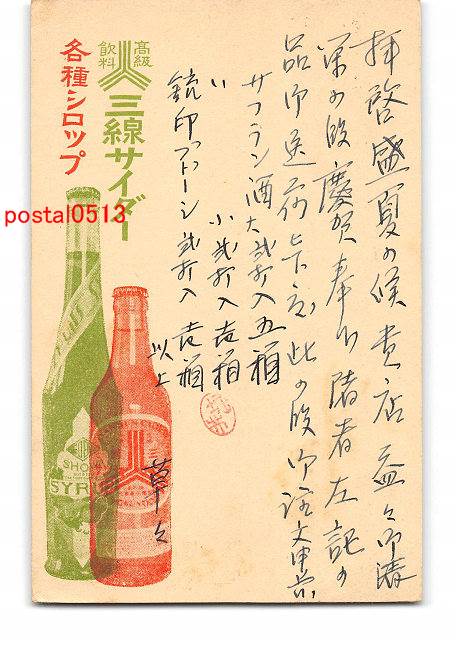 拝啓盛夏の候貴店益々御清
栄の段慶賀奉り陳者左記の
品御送荷被下度此の段御註文申上
サフラン酒大弐打入五箱
〃 小弐打入壱箱
銃印ブドーシ弐打入壱箱
以上
草々
高級
飲料
三線サイダー
各種シロップ
SYR
postal0513